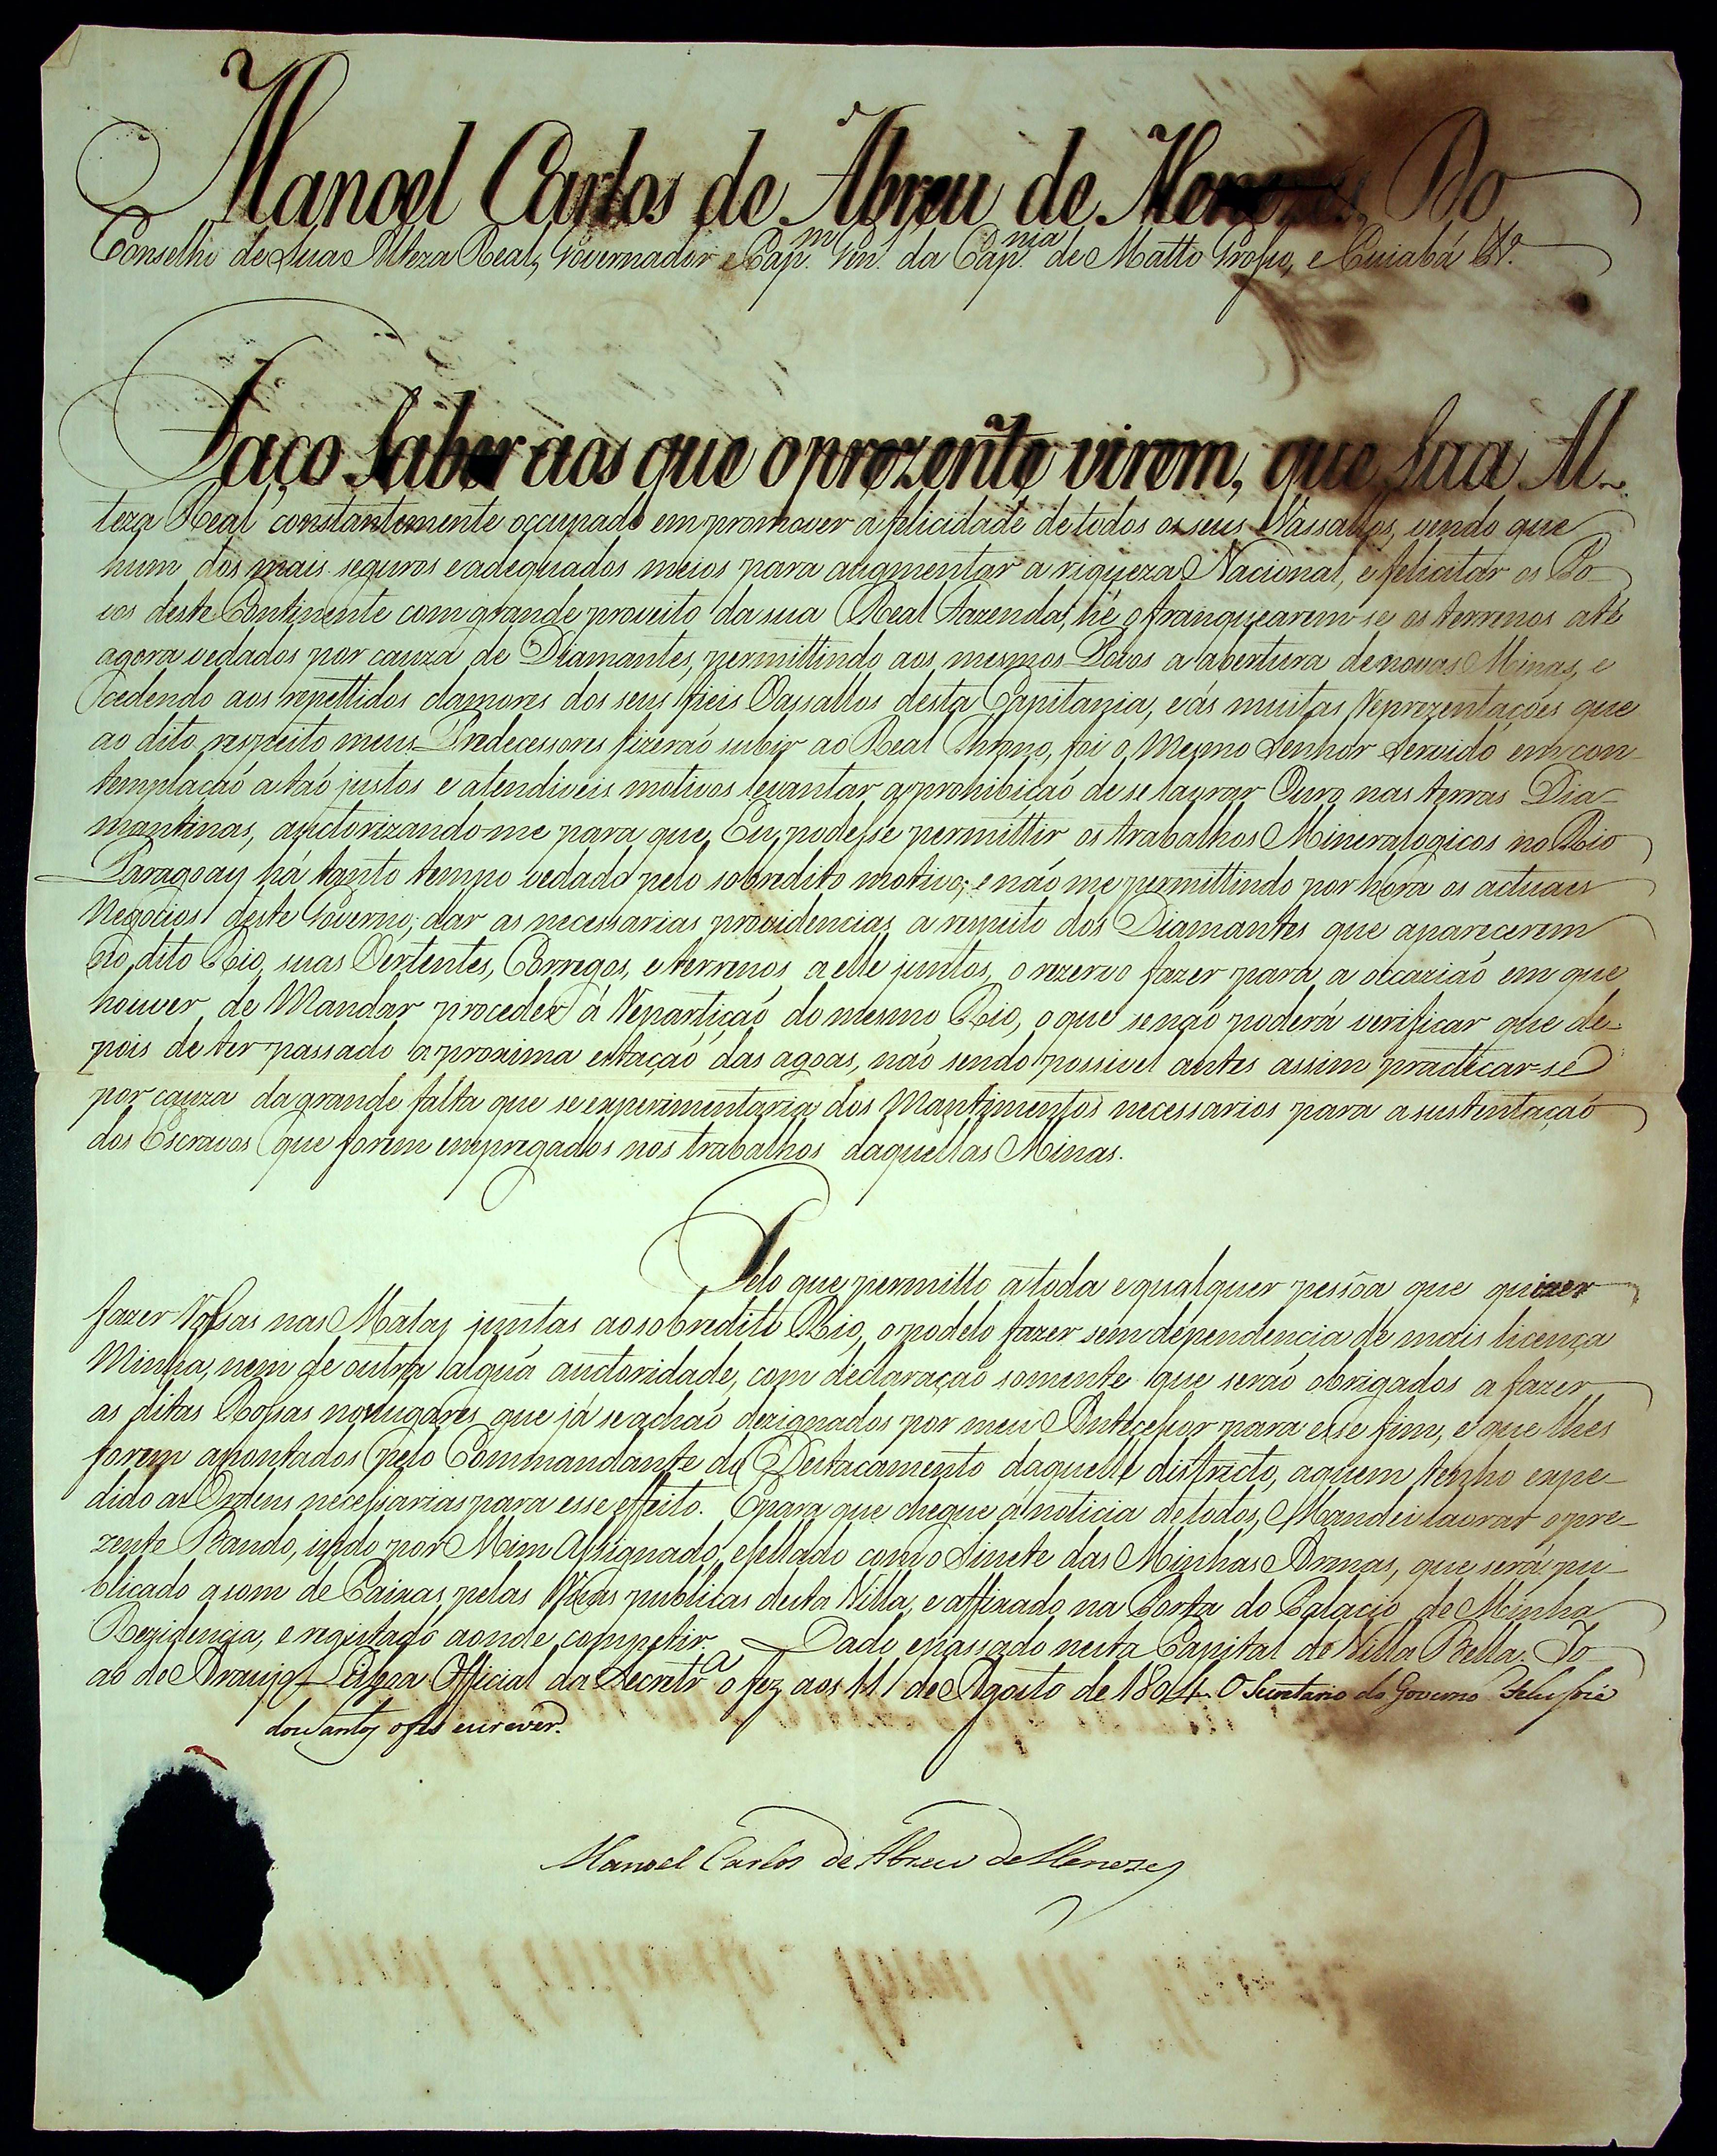 Manoel Carlos de Abreu de Menezes, Do
Conselho de Sua Alteza Real, Governador e Cap.m Gen.l da Cap.nia de Matto Grosso, e Cuiabá &.ª
Faço saber aos que o prezente virem, que Sua Al-
teza Real constantemente occupado em promover a felicidade de todos os seus Vassallos, vendo que
hum dos mais seguros e adequados meios para augmentar a riqueza Nacional, e felicitar os Po-
vos deste Continente com grande proveito da sua Real Fazenda, hé o franquearem-se os terrenos até
agora vedados por cauza de Diamantes, permittindo aos mesmos Povos a abertura de novas Minas, e
cedendo aos repettidos clamores dos seus fieis Vassallos desta Capitania, e ás muitas Reprezentações que
ao dito respeito meus Predecessores fizeraõ subir ao Real Throno, foi o Mesmo Senhor Servido em con-
templaçaõ a taõ justos e atendiveis motivos levantar a prohibiçaõ de se lavrar Ouro nas terras Dia-
mantinas, auctorizando-me para que Eu podesse permittir os trabalhos Mineralogicos no Rio
Paragoay há tanto tempo vedado pelo sobredito motivo; e naõ me permittindo por hora os actuaes
Negocios deste Governo, dar as necessarias providencias a respeito dos Diamantes que aparecerem
no dito Rio, suas Vertentes, Corregos, e terrenos a elle juntos, o rezervo fazer para a occaziaõ em que
houver de Mandar proceder á Repartiçaõ do mesmo Rio, o que se naõ poderá verificar que de-
pois de ter passado a proxima estaçaõ das agoas, naõ sendo possivel antes assim practicar-se
por cauza da grande falta que se experimentaria dos Mantimentos necessarios para a sustentaçaõ
dos Escravos que forem empregados nos trabalhos daquellas Minas.
Pelo que permitto a toda e qualquer pessôa que quizer
fazer Rossas nas Matas juntas ao sobredito Rio, o podelo fazer sem dependencia de mais licença
Minha, nem de outra alguã auctoridade, com declaraçaõ somente que seraõ obrigados a fazer
as ditas Rossas nos lugares que já se achaõ dezignados por meu Antecessor para esse fim, e que lhes
forem apontados pelo Commandante do Destacamento daquelle districto, a quem tenho expe-
dido as Ordens necessarias para esse effeito. E para que chegue á noticia de todos, Mandei lavrar o pre-
zente Bando, indo por Mim Assignado, e sellado com o Sinete das Minhas Armas, que será pu-
blicado a som de Caixas pelas Ruas publicas desta Villa, e affixado na Porta do Palacio de Minha
Rezidencia, e registado aonde competir. Dado e passado nesta Capital de Villa Bella. Jo-
aõ de Araujo Official da Secretr.ª o fez aos 11 de Agosto de 1804. O Secretario do Governo José
dos Santos o fes escrever.
Manoel Carlos de Abreu de Menezes